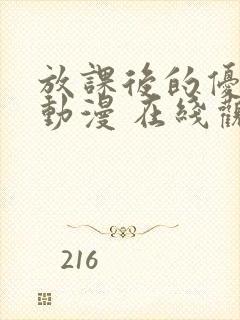 放課後的優
動漫 在綫觀
216